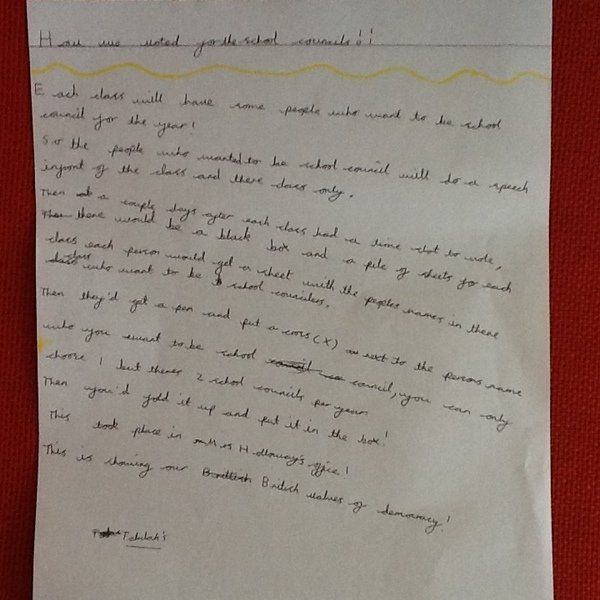 How we voted for the school councils!!
Each class will have some people who want to be school
council for the year!
So the people who wanted to be school council will do a speech
infront of the class and there class only.
Then at a couple days after each class had a time slot to vote,
Then there would be a black box and a pile of sheets for each
class each person would get a sheet with the peoples names in there
class who want to be school councilers.
Then they'd get a pen and put a cross (X) next to the persons name
who you want to be school council council, you can only
choose 1 but theres 2 school councils per year!
Then you'd fold it up and put it in the box!
This took place in Mrs Holloway's office!
This is showing our British values of democracy!
Tabulah's